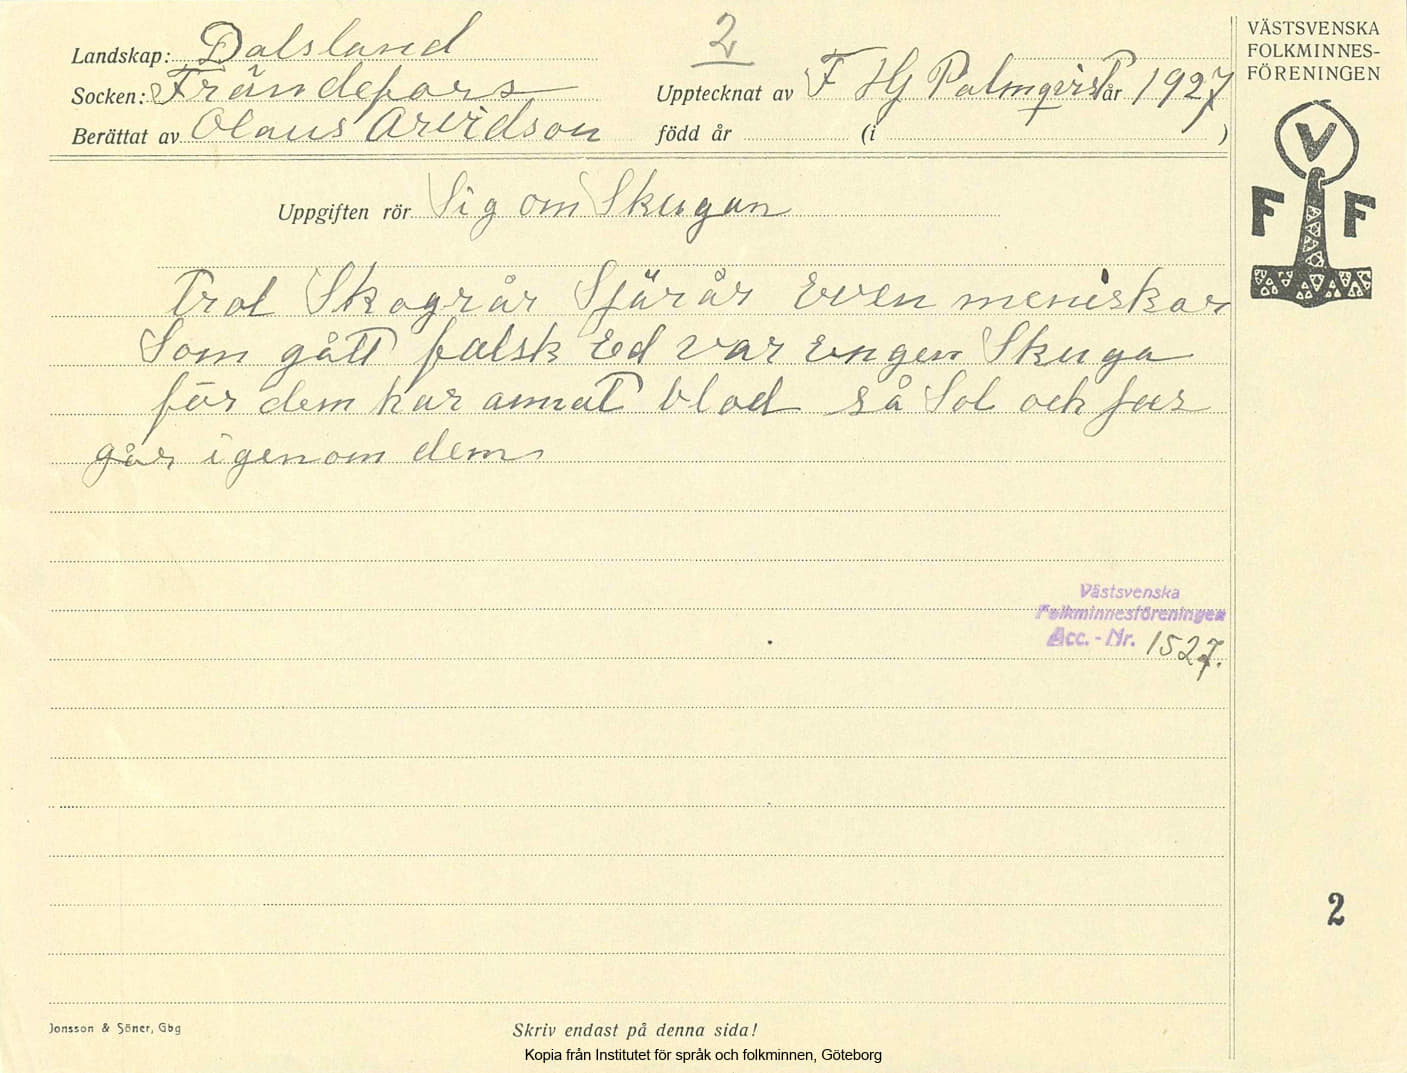 Landskap: Dalsland
2
VÄSTSVENSKA
FOLKMINNES-
FÖRENINGEN
Socken: Frändefors
Upptecknat av F Hj Palmqvist år 1927
Berättat av Olaus Arvidson
född år (i )
V
F F
Uppgiften rör Sig om Skugan
Trol Skogrår Sjörår Even meniskor
Som gått falsk Ed var Engen Skuga
för dem har annat blod så Sol och jus
går igenom dem
Västsvenska
Folkminnesföreningen
Acc.-Nr. 1527.
2
Jonsson & Söner, Gbg
Skriv endast på denna sida!
Kopia från Institutet för språk och folkminnen, Göteborg